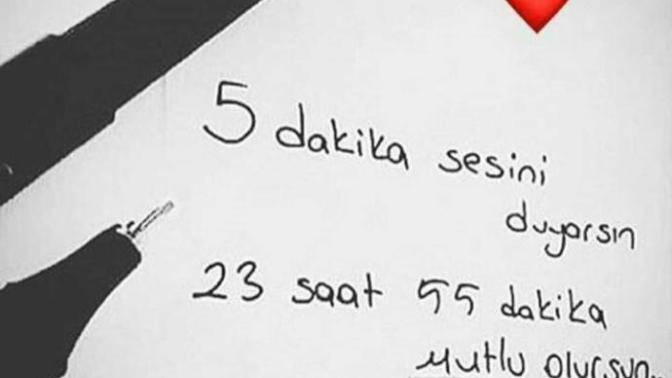 5 dakika sesini
duyarsın
23 saat 55 dakika
mutlu olursun..